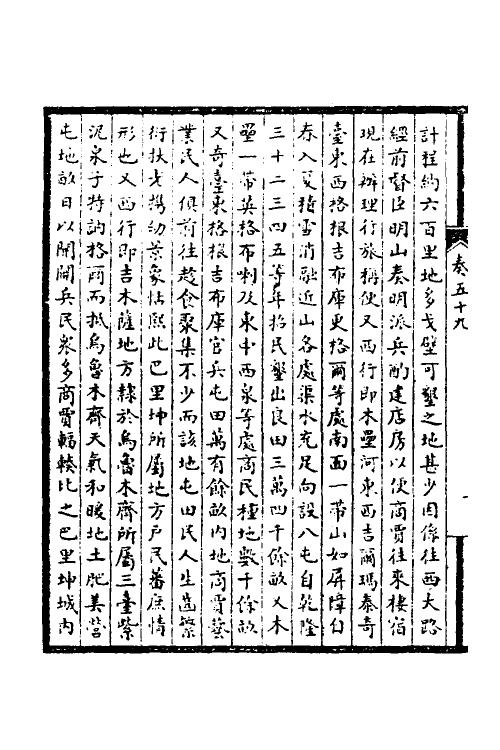 計程約六百里地多戈壁可墾之地甚少因係往西大路
經前督臣明山奏明派兵酌建店房以便商賈往來棲宿
現在辦理行旅稱便又西行即木壘河東西吉爾瑪泰奇
臺東西格根吉布庫更格爾等處南面一帶山如屏障自
春入夏積雪消融近山各處渠水充足向設八屯自乾隆
三十二三四五等年招民墾出良田三萬四千餘畝又木
壘一帶英格布喇及東中西泉等處商民種地數千餘畝
又奇臺東格根吉布庫官兵屯田萬有餘畝內地商賈藝
業民人俱前往趁食聚集不少而該地屯田民人生齒繁
衍扶老攜幼景象恬熙此巴里坤所屬地方戶民蕃庶情
形也又西行即吉木薩地方隸於烏魯木齊所屬三臺紫
泥泉子特訥格爾而抵烏魯木齊天氣和暖地土肥美營
屯地畝日以開闢兵民衆多商賈輻輳比之巴里坤城內
奏五十九